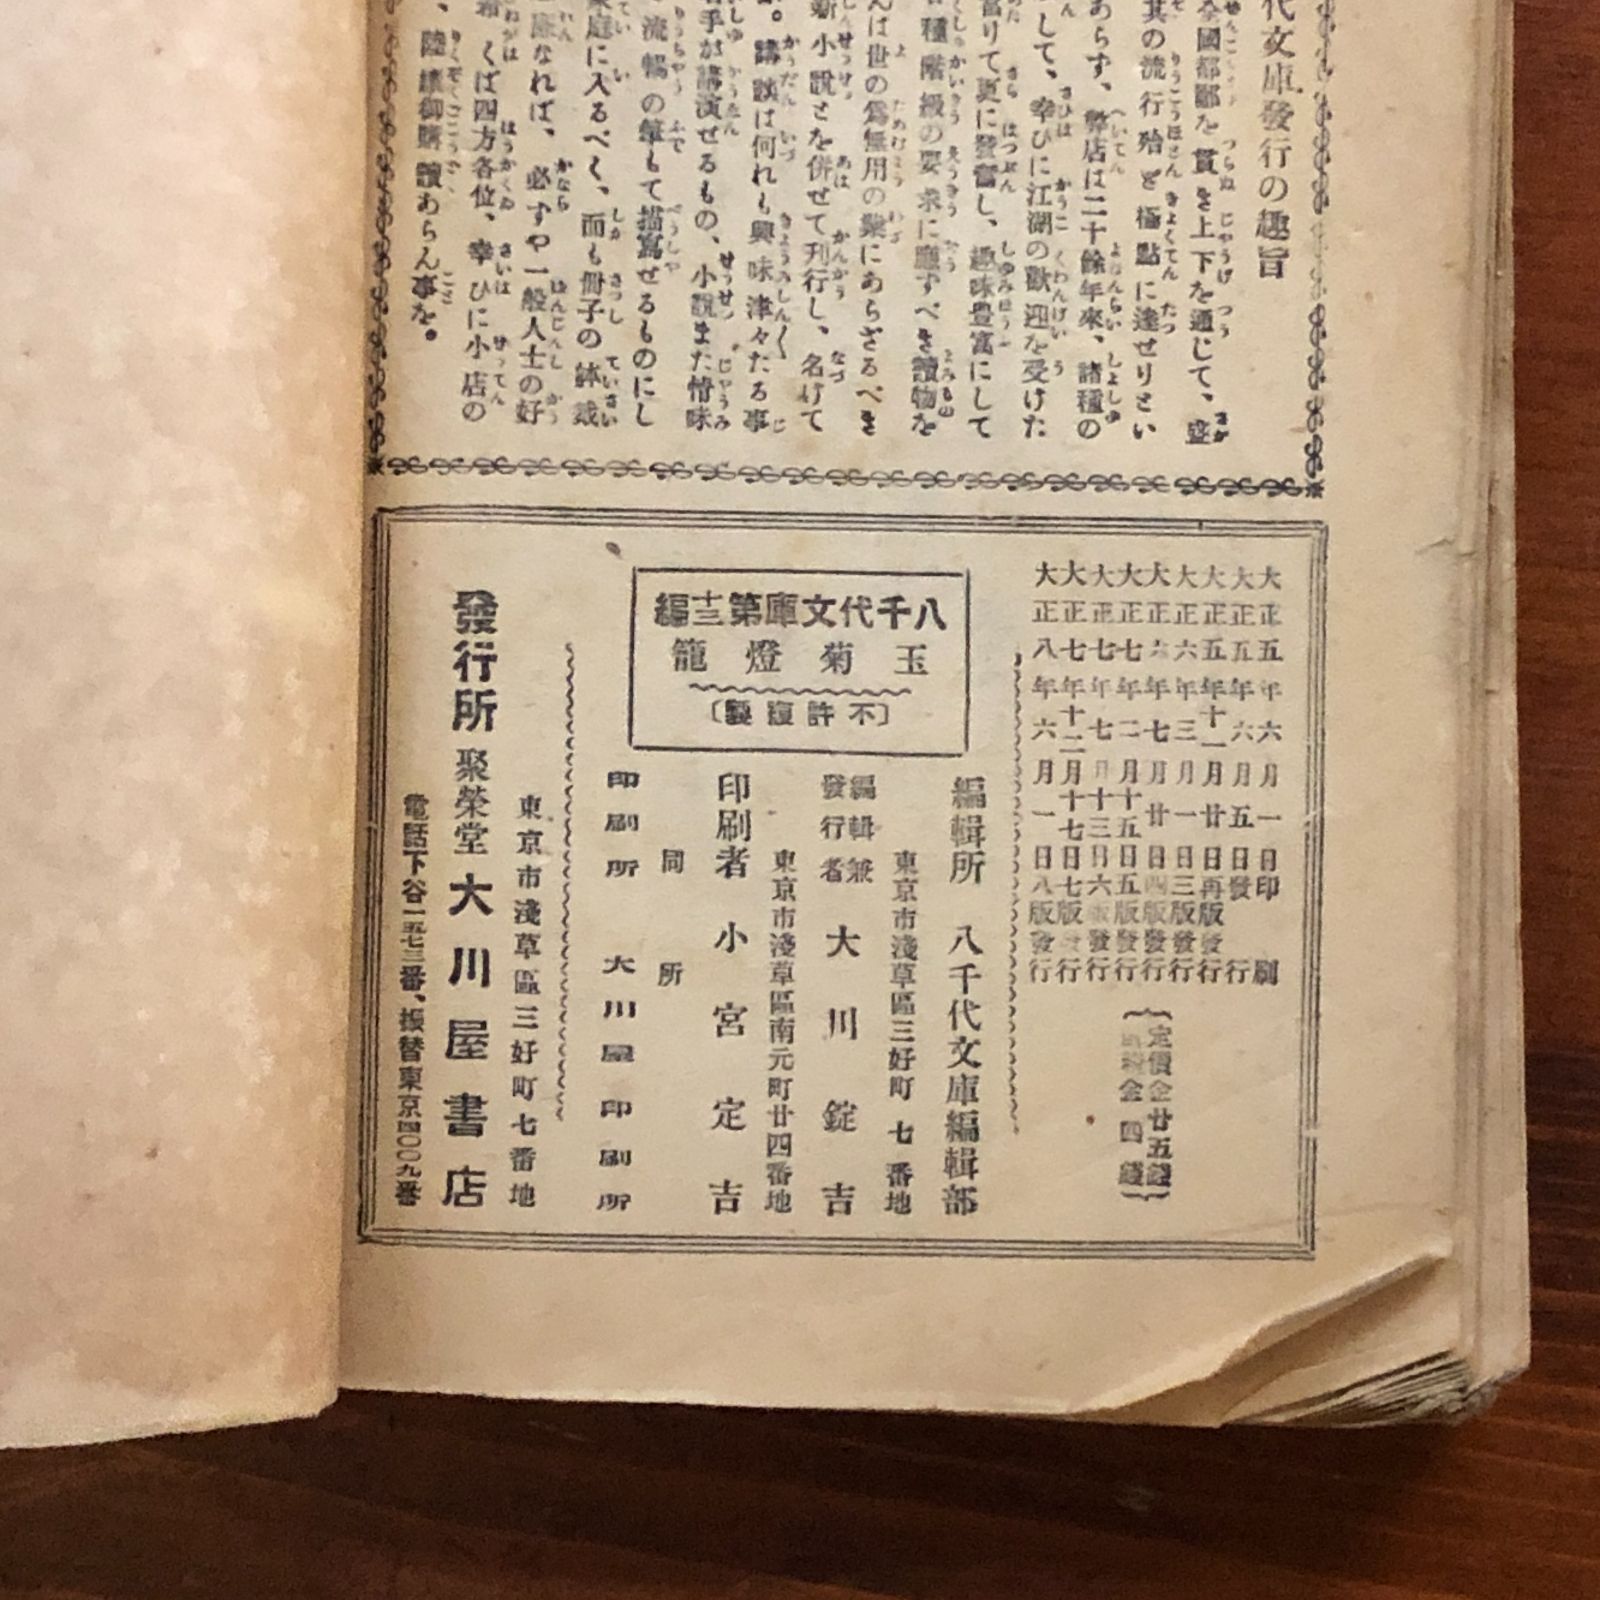 代文庫發行の趣旨
全國都鄙を貫き上下を通じて、盛
其の流行殆ど極點に達せりとい
あらず、弊店は二十餘年來、諸種の
して、幸ひに江湖の歡迎を受けた
當りて更に發奮し、趣味豊富にして
各種階級の要求に應すべき讀物を
んは世の爲無用の業にあらざるべき
新小說とを併せて刊行し、名けて
。講談は何れも興味津々たる事
手が講演せるもの、小說また情味
流暢の筆もて描寫せるものにし
家庭に入るべく、而も册子の體裁
廉なれば、必ずや一般人士の好
くば四方各位、幸ひに小店の
、陸續御購讀あらん事を。
大正五年六月一日印刷
大正五年六月五日發行
大正五年十一月廿日再版發行
大正六年三月一日三版發行
大正六年七月廿日四版發行
大正七年二月十五日五版發行
大正七年七月十三日六版發行
大正七年十二月十七日七版發行
大正八年六月一日八版發行
定價金廿五錢
金四錢
八千代文庫第十三編
玉菊燈籠
〔不許複製〕
編輯所 八千代文庫編輯部
東京市淺草區三好町七番地
編輯兼發行者 大川錠吉
東京市淺草區南元町廿四番地
印刷者 小宮定吉
同所
印刷所 大川屋印刷所
東京市淺草區三好町七番地
發行所 聚榮堂 大川屋書店
電話下谷一五七三番、振替東京四〇〇九番